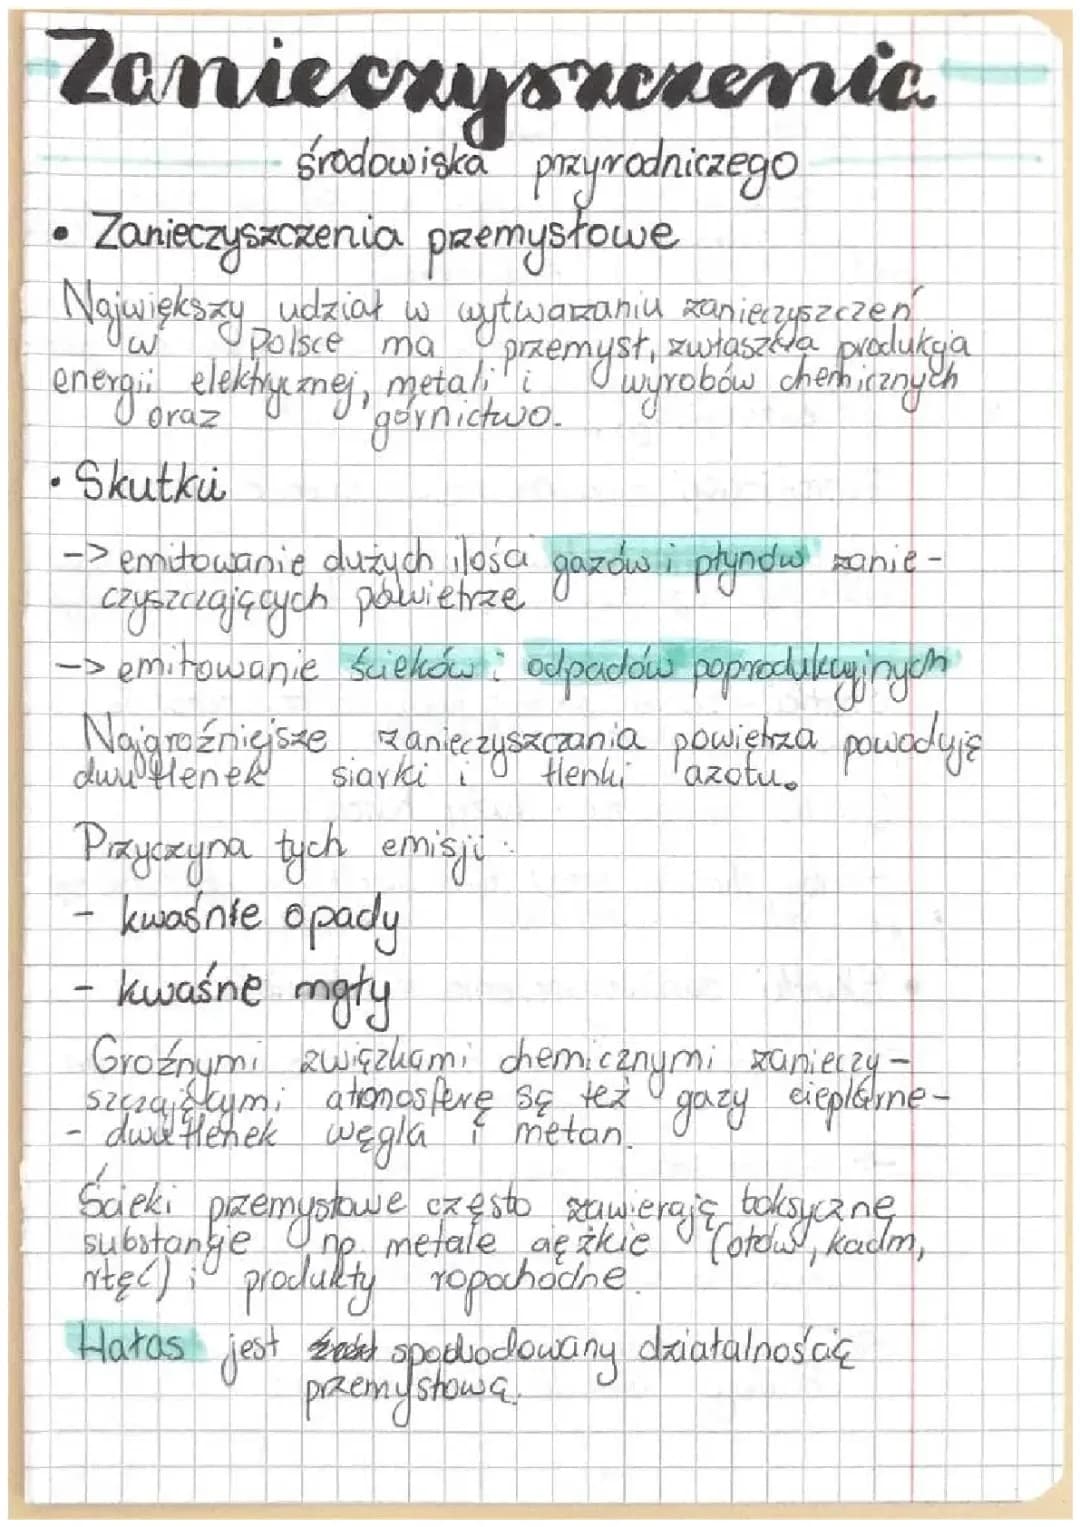 Zanieczyszczenia
środowiska przyrodniczego
• Zanieczyszczenia przemysłowe
Największy udział w wytwarzaniu zanieczyszczeń
w Polsce ma przemysł, zwłaszcza produkcja
energii elektrycznej, metali i wyrobów chemicznych
oraz górnictwo.
• Skutki
-> emitowanie dużych ilości gazów i płynów zanie-
czyszczających powietrze
-> emitowanie ścieków i odpadów poprodukcyjnych
Najgroźniejsze zanieczyszczania powietrza powodyją
dwutlenek siarki i tlenki azotu.
Przyczyna tych emisji:
- kwaśnie opady
- kwaśne mgły
Groźnymi związkami chemicznymi zanieczy-
szczającymi atmosferę są też gazy cieplarne-
- dwutlenek węgla i metan.
Ścieki przemysłowe często zawierają toksyczne
substancje np. metale ciężkie (ołów, kadm,
rtęć) i produkty ropochodne.
Hałas jest spodwodowany działalnością
przemysłową.